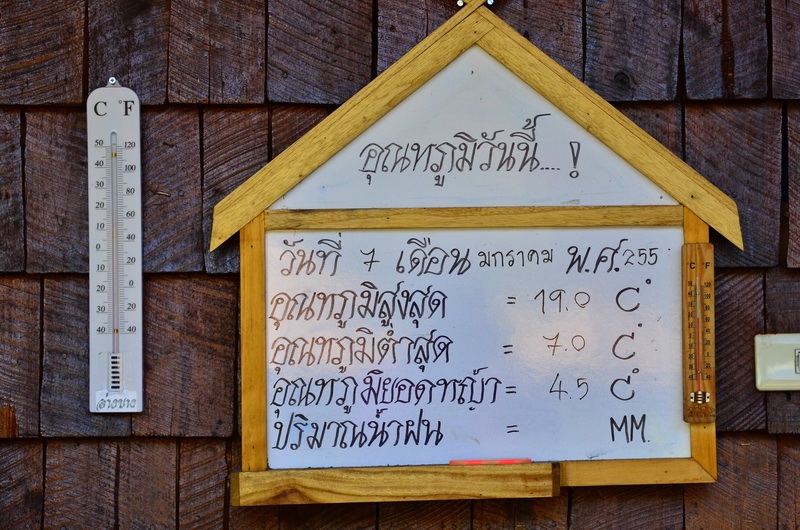 อุณหภูมิวันนี้....!
วันที่ 7 เดือน มกราคม พ.ศ. 255
อุณหภูมิสูงสุด = 19.0 C°
อุณหภูมิต่ำสุด = 7.0 C°
อุณหภูมิยอดหญ้า = 4.5 C°
ปริมาณน้ำฝน = MM.
C °F
50 120
40 100
30 80
20 60
10 40
0 20
10 0
20 20
30 40
40
อ่างขาง
C F